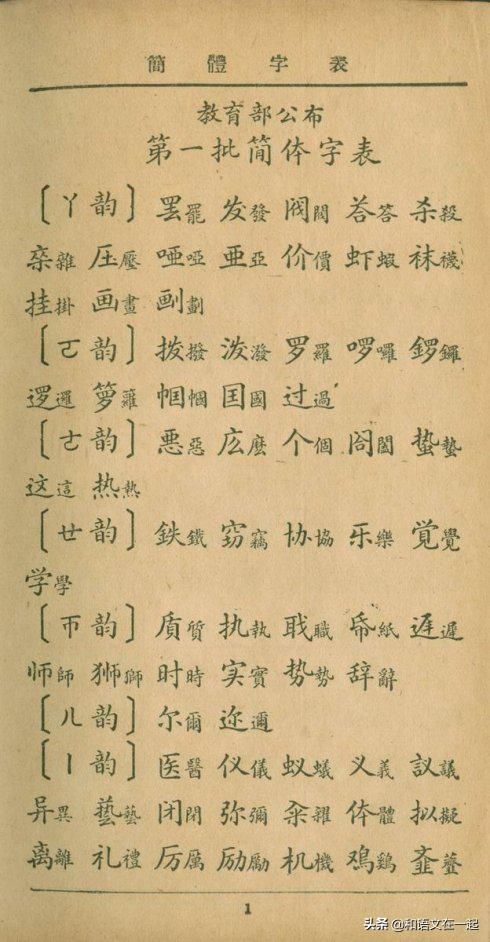 簡體字表
教育部公布
第一批简体字表
〔ㄚ韵〕 罢罷 发發 阀閥 荅答 杀殺
杂雜 压壓 哑啞 亜亞 价價 虾蝦 袜襪
挂掛 画畫 劃
〔ㄛ韵〕 拨撥 泼潑 罗羅 啰囉 鑼
逻邏 箩籮 帼幗 国國 过過
〔ㄜ韵〕 悪惡 庅麽 个個 閤闔 蛰蟄
这這 热熱
〔ㄝ韵〕 鉄鐵 窃竊 协協 乐樂 覚覺
学學
〔ㄭ韵〕 貭質 执執 职職 帋紙 迟遲
师師 狮獅 时時 实實 势勢 辞辭
〔ㄦ韵〕 尔爾 迩邇
〔ㄧ韵〕 医醫 仪儀 蚁蟻 义義 議
异異 藝 闭閉 弥彌 籴糴 体體 拟擬
离離 礼禮 厉厲 励勵 机機 鸡鷄 虀
1
头条 @和语文在一起